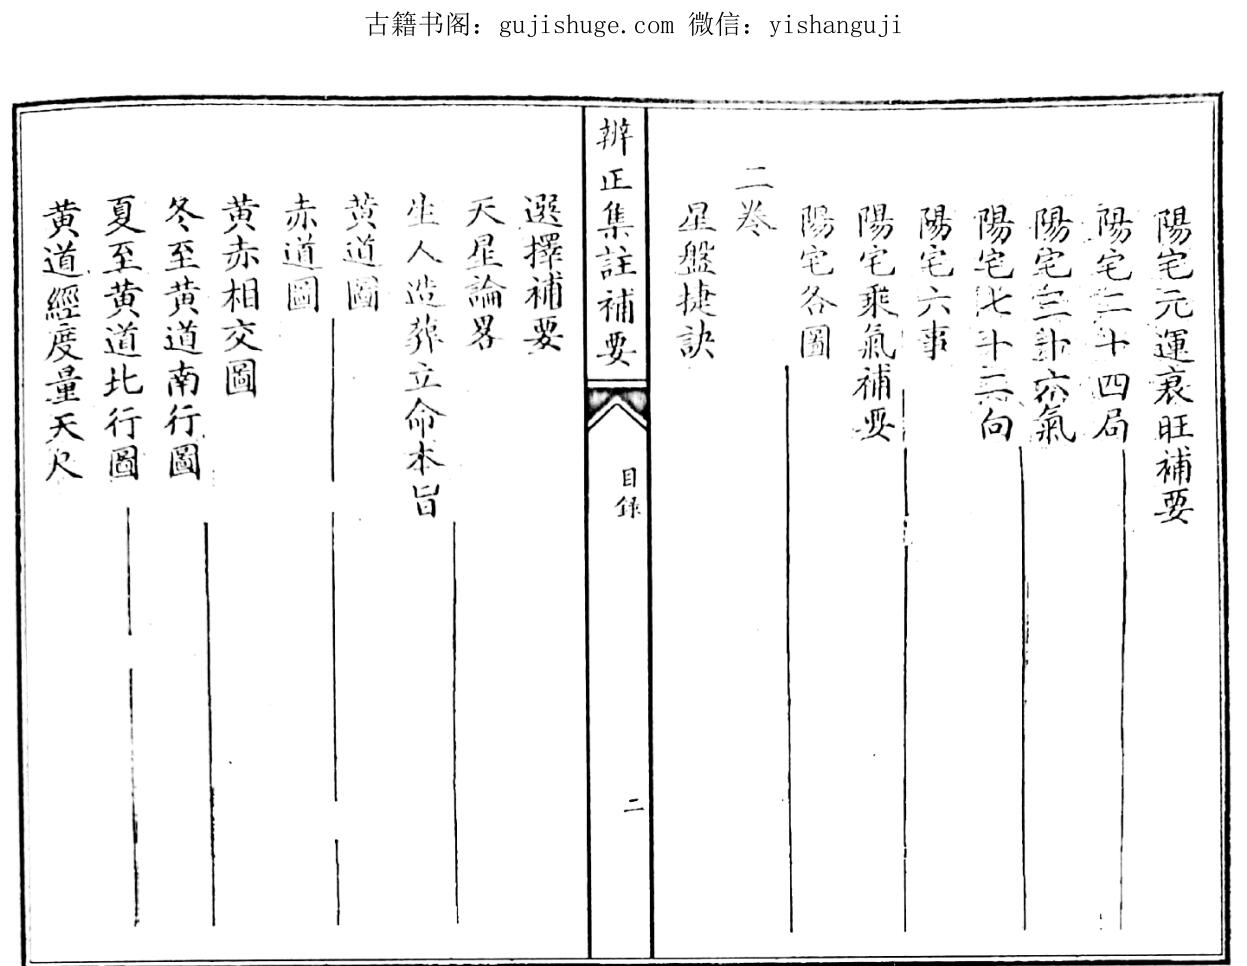 古籍书阁：gujishuge.com 微信：yishanguji
陽宅元運衰旺補要
陽宅二十四局
陽宅三十六氣
陽宅七十二向
陽宅六事
陽宅乘氣補要
陽宅各圖
二卷
星盤捷訣
辨正集註補要
目錄
二
選擇補要
天星論畧
生人造葬立命本旨
黄道圖
赤道圖
黄赤相交圖
冬至黄道南行圖
夏至黄道北行圖
黄道經度量天尺